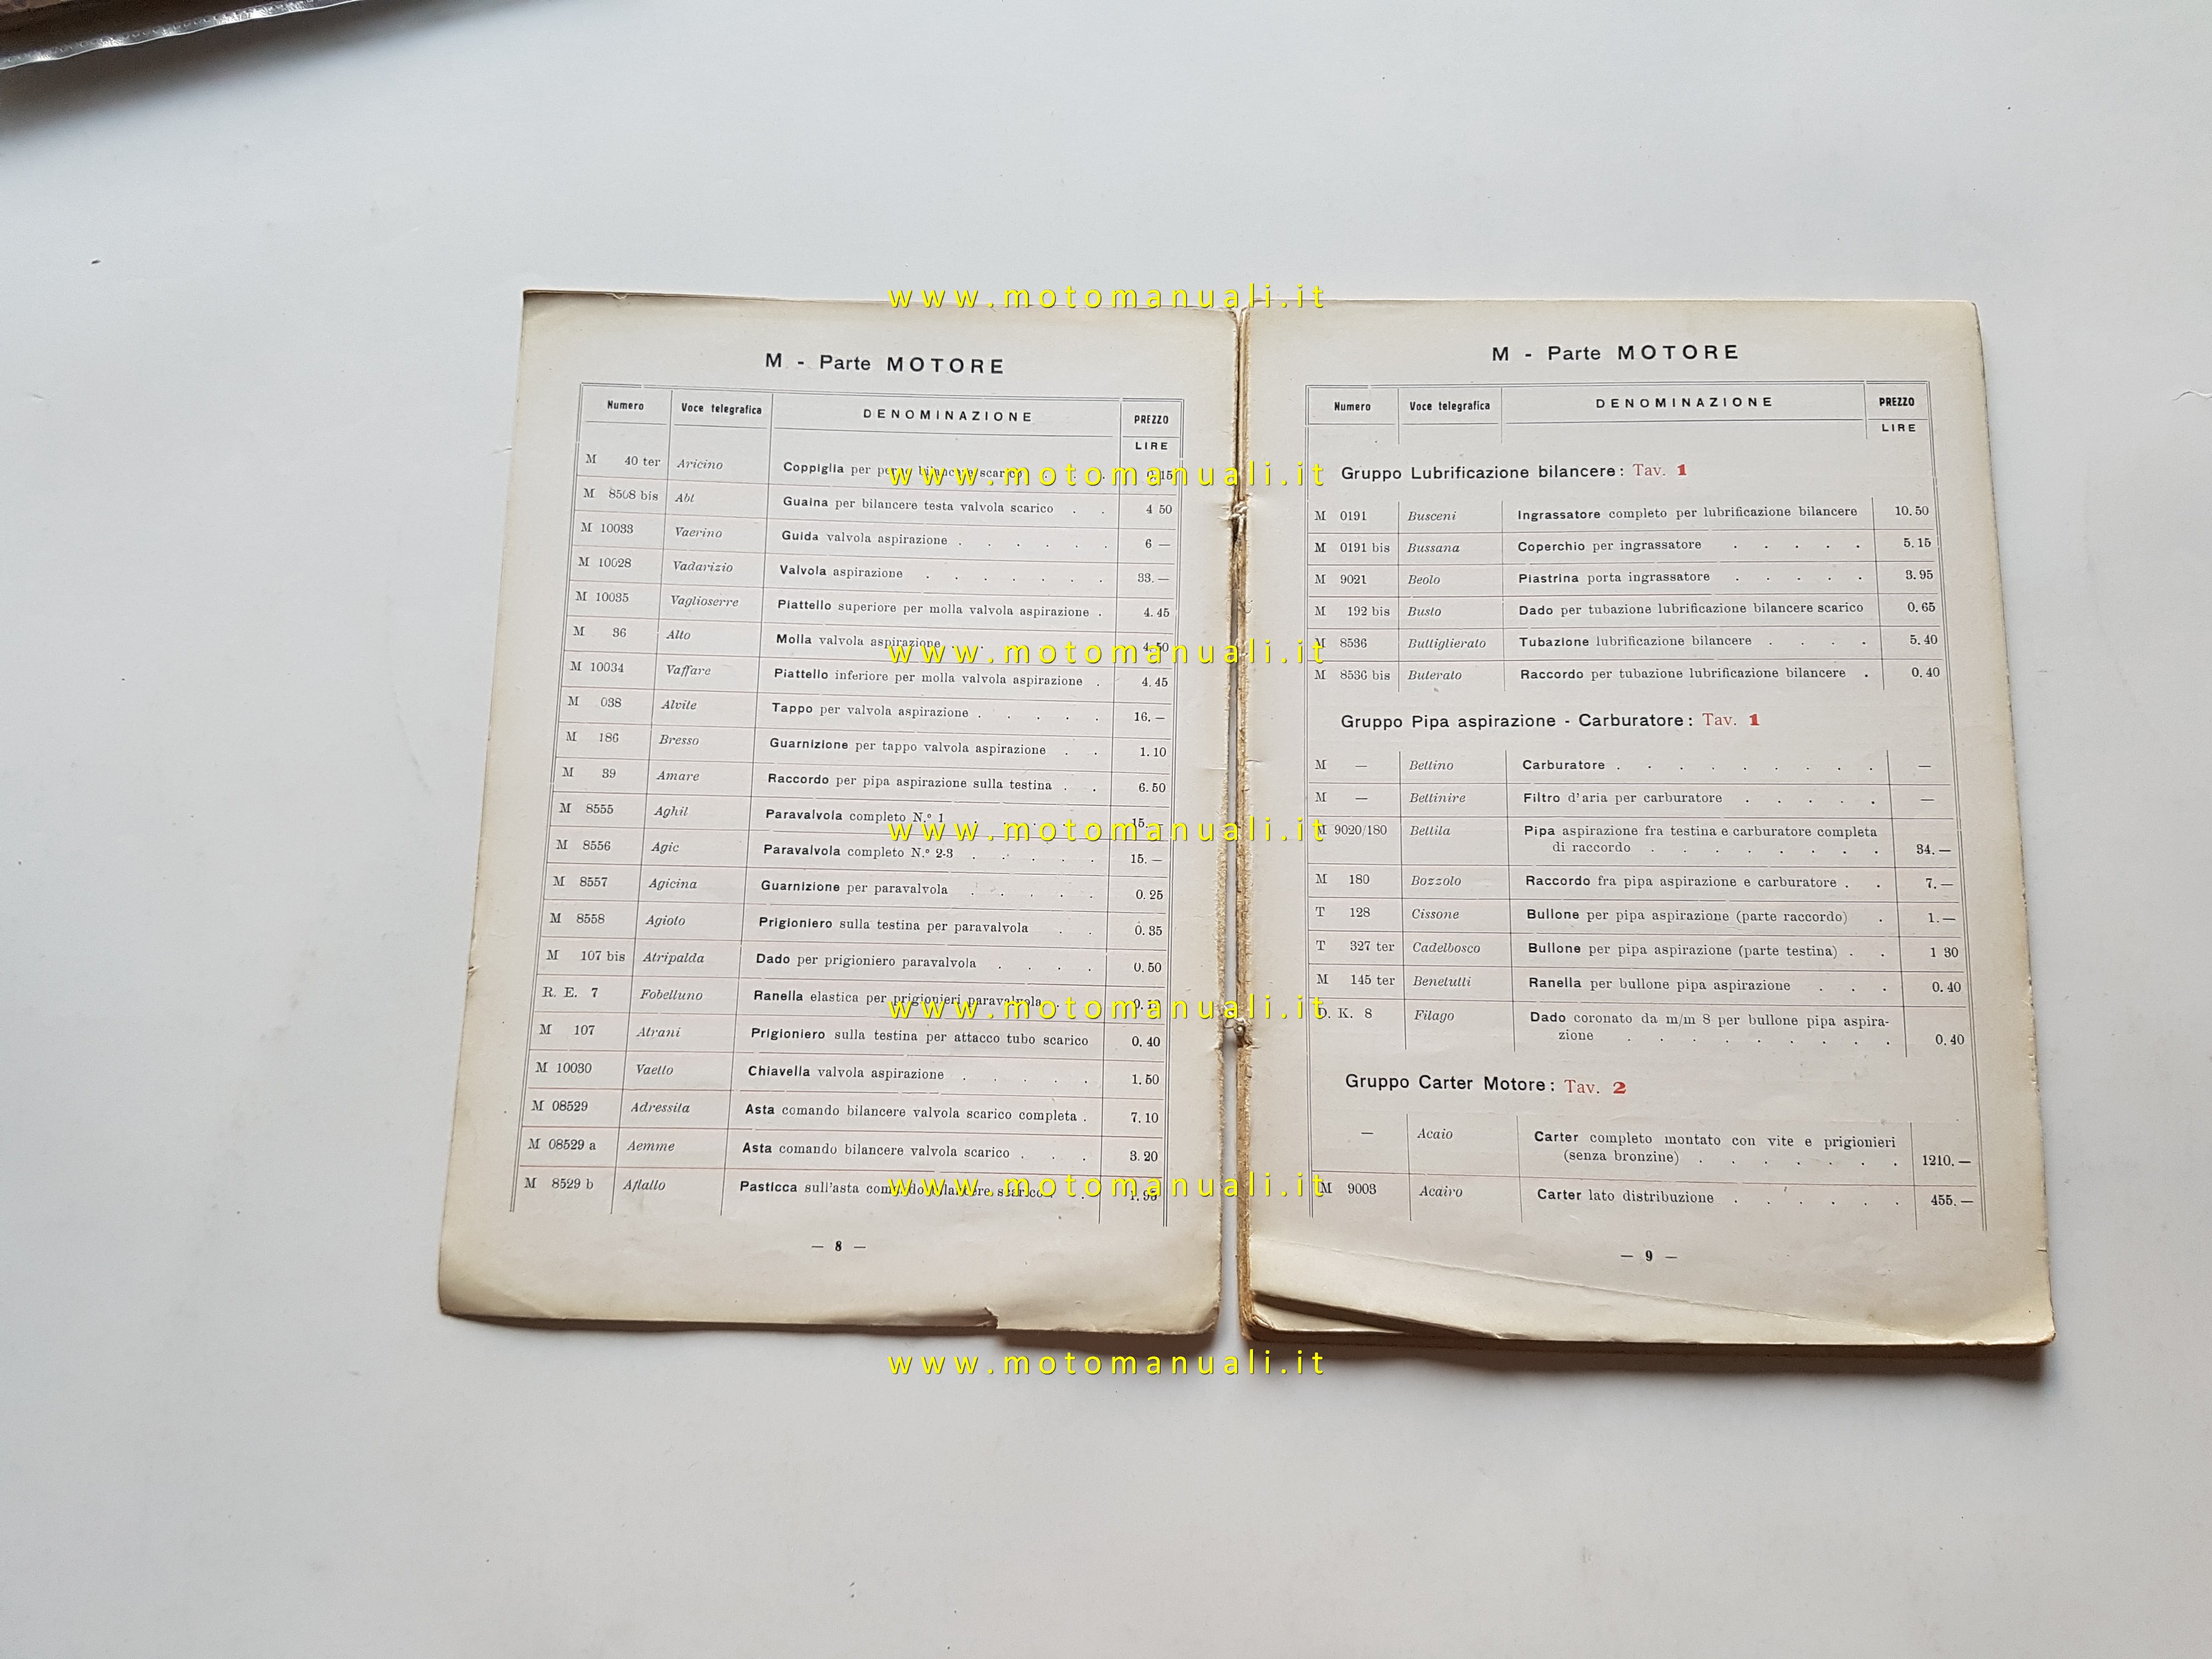 www.motomanuali.it
M - Parte MOTORE
Numero Voce telegrafica DENOMINAZIONE PREZZO
LIRE
M 40 ter Aricino Coppiglia per bilancere scarico 0.15
M 8508 bis Abt Guaina per bilancere testa valvola scarico . . 4 50
M 10033 Vaerino Guida valvola aspirazione . . . . . . 6 —
M 10028 Vadarizio Valvola aspirazione . . . . . . 33. —
M 10035 Vaglioserre Piattello superiore per molla valvola aspirazione . 4. 45
M 36 Alto Molla valvola aspirazione . . 4.50
M 10034 Vaffare Piattello inferiore per molla valvola aspirazione . 4. 45
M 038 Alvite Tappo per valvola aspirazione . . . . . 16. —
M 186 Bresso Guarnizione per tappo valvola aspirazione . . 1. 10
M 39 Amare Raccordo per pipa aspirazione sulla testina . . 6. 50
M 8555 Aghil Paravalvola completo N.º 1 . . . 15. —
M 8556 Agic Paravalvola completo N.º 2-3 . . . . . 15. —
M 8557 Agicina Guarnizione per paravalvola . . . . . 0. 25
M 8558 Agioto Prigioniero sulla testina per paravalvola . . 0. 35
M 107 bis Atripalda Dado per prigioniero paravalvola . . . . 0. 50
R. E. 7 Fobelluno Ranella elastica per prigionieri paravalvola .
M 107 Atrani Prigioniero sulla testina per attacco tubo scarico 0. 40
M 10030 Vaetto Chiavella valvola aspirazione . . . . . 1. 50
M 08529 Adressita Asta comando bilancere valvola scarico completa . 7. 10
M 08529 a Aemme Asta comando bilancere valvola scarico . . . 3. 20
M 8529 b Aflatto Pasticca sull'asta comando bilancere scarico . 1. 95
— 8 —
M - Parte MOTORE
Numero Voce telegrafica DENOMINAZIONE PREZZO
LIRE
Gruppo Lubrificazione bilancere: Tav. 1
M 0191 Busceni Ingrassatore completo per lubrificazione bilancere 10. 50
M 0191 bis Bussana Coperchio per ingrassatore . . . . . 5. 15
M 9021 Beolo Piastrina porta ingrassatore . . . . . 3. 95
M 192 bis Busto Dado per tubazione lubrificazione bilancere scarico 0. 65
M 8536 Buttiglierato Tubazione lubrificazione bilancere . . . . 5. 40
M 8536 bis Buterato Raccordo per tubazione lubrificazione bilancere . 0. 40
Gruppo Pipa aspirazione - Carburatore: Tav. 1
M — Bettino Carburatore . . . . . . . . . —
M — Bettinire Filtro d'aria per carburatore . . . . . —
M 9020/180 Bettila Pipa aspirazione fra testina e carburatore completa
di raccordo . . . . . . . . 34. —
M 180 Bozzolo Raccordo fra pipa aspirazione e carburatore . . 7. —
T 128 Cissone Bullone per pipa aspirazione (parte raccordo) . 1. —
T 327 ter Cadelbosco Bullone per pipa aspirazione (parte testina) . . 1 30
M 145 ter Benetutti Ranella per bullone pipa aspirazione . . . 0. 40
D. K. 8 Filago Dado coronato da m/m 8 per bullone pipa aspira-
zione . . . . . . . . . 0. 40
Gruppo Carter Motore: Tav. 2
— Acaio Carter completo montato con vite e prigionieri
(senza bronzine) . . . . . . . 1210. —
M 9003 Acairo Carter lato distribuzione . . . . . . 455. —
— 9 —
www.motomanuali.it
www.motomanuali.it
www.motomanuali.it
www.motomanuali.it
www.motomanuali.it
www.motomanuali.it